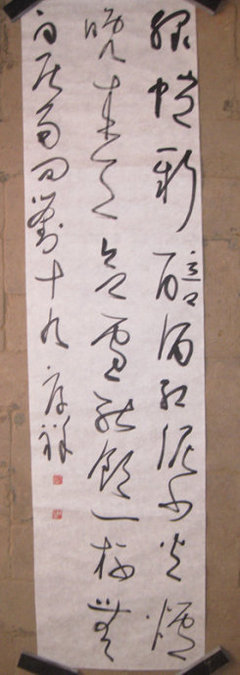 綠螘新醅酒紅泥小火爐
晚來天欲雪能飲一杯無
白居易問劉十九 祥